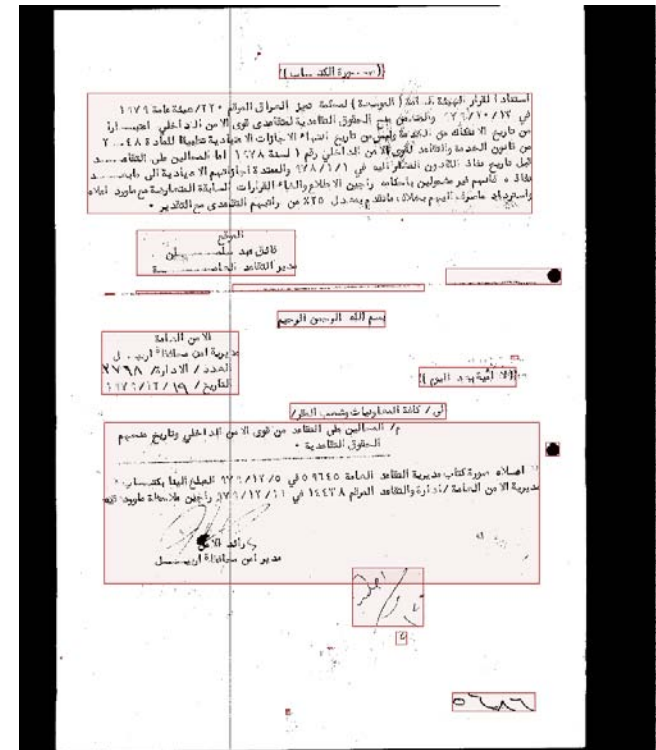 (( صورة الكتاب ))
استنادا لقرار الهيئة العامة ( الموسعة ) لمحكمة تمييز العراق المرقم ٢٢٠/هيئة عامة ١٩٧٩
في والمتضمن منح الحقوق التقاعدية لمتقاعدى قوى الامن الداخلي اعتبارا
من تاريخ الانفكاك من الخدمة وليس من تاريخ انتهاء الاجازات الاعتيادية تطبيقا للمادة
من قانون الخدمة والتقاعد لقوى الامن الداخلي رقم ١ لسنة ١٩٧٨ اما المحالين على التقاعد
قبل تاريخ نفاذ القانون المشار اليه في ٩٧٨/١/١ والممتدة اجازاتهم الاعتيادية الى مابعد
نفاذه فانهم غير مشمولين باحكامه راجين الاطلاع والغاء القرارات السابقة المتعارضة مع ماورد اعلاه
واسترداد ماصرف اليهم بخلاف ماتقدم بمعدل ٢٥٪ من راتبهم التقاعدى مع التقدير ٠
الموقع
فائق عبد سلمان
مدير التقاعد العامة
بسم الله الرحمن الرحيم
الامن العامة
مديرية امن محافظة اربيل
العدد / الادارة/ ٢٧٦٨
التاريخ / ١٩ /١٢/١٩٧٩
الى / كافة المعاونيات وشعب المقر/
م/ المحالين على التقاعد من قوى الامن الداخلي وتاريخ منحهم
الحقوق التقاعدية ٠
اعلاه صورة كتاب مديرية التقاعد العامة ٥٩٦٤٥ في ٩٧٩/١٢/٥ المبلغ الينا بكتاب
مديرية الامن العامة /ادارة والتقاعد المرقم ١٤٤٣٨ في ٩٧٩/١٢/١١ راجين ملاحظة ماورد فيه
رائد الامن
مدير امن محافظة اربيل